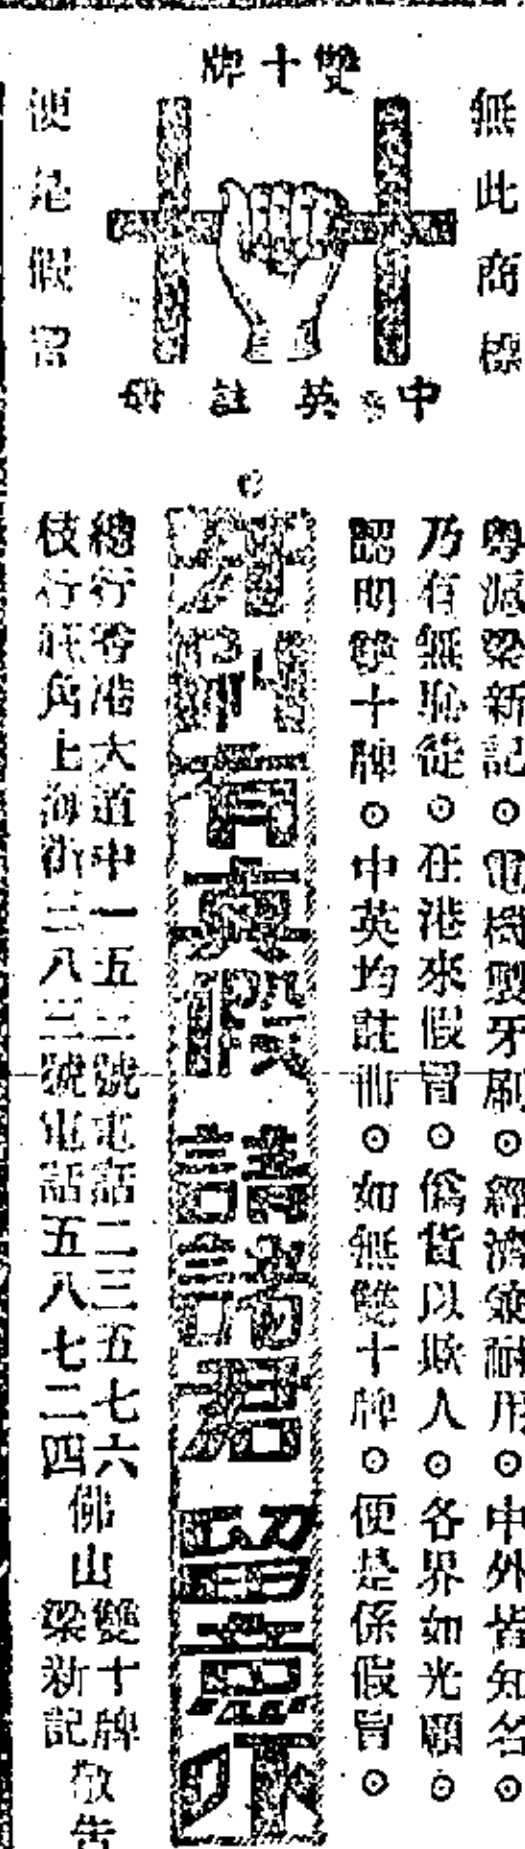 雙十牌
無此商標
便是假冒
中英註冊
粵滬梁新記⊙電機製牙刷⊙經濟兼耐用⊙中外皆知名⊙
乃有無恥徒⊙在港來假冒⊙偽貨以欺人⊙各界如光顧⊙
認明雙十牌⊙中英均註冊⊙如無雙十牌⊙便是係假冒⊙
牙刷有真假 請諸君留意下
總行香港大道中一五三號電話二三五七六
枝行旺角上海街三八三號電話五八七二四
佛山
雙十牌
梁新記
敬告